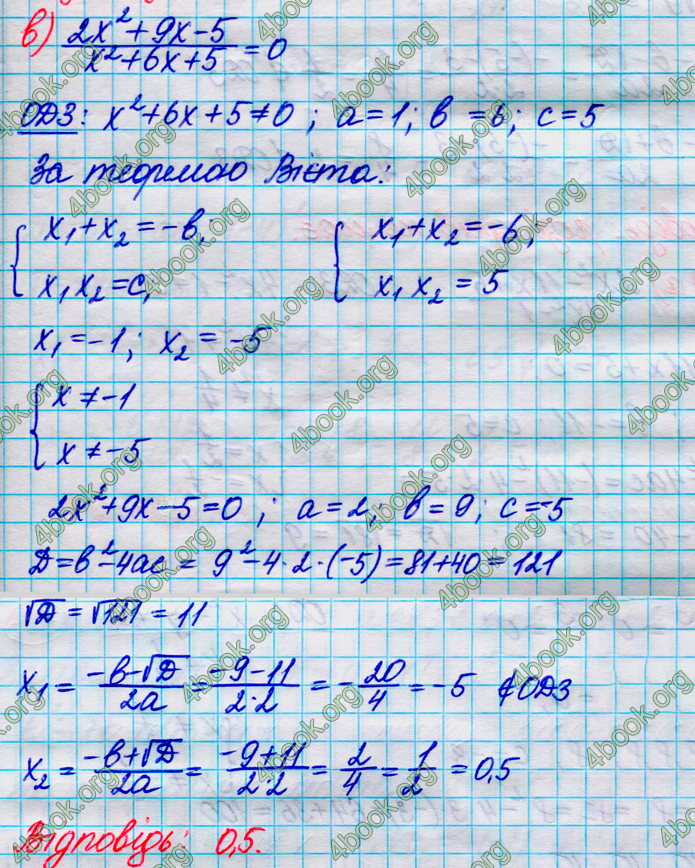 в) (2x²+9x-5)/(x²+6x+5) = 0
ОДЗ: x²+6x+5≠0 ; a=1; b=6; c=5
За теоремою Вієта:
{ x₁+x₂=-b; { x₁+x₂=-6;
x₁x₂=c, x₁x₂=5
x₁=-1; x₂=-5
{ x≠-1
x≠-5
2x²+9x-5=0 ; a=2; b=9; c=-5
D=b²-4ac = 9²-4·2·(-5)=81+40=121
√D=√121=11
x₁ = (-b-√D)/2a = (-9-11)/(2·2) = -20/4 = -5 ∉ОДЗ
x₂ = (-b+√D)/2a = (-9+11)/(2·2) = 2/4 = 1/2 = 0,5
Відповідь: 0,5.
4book.org